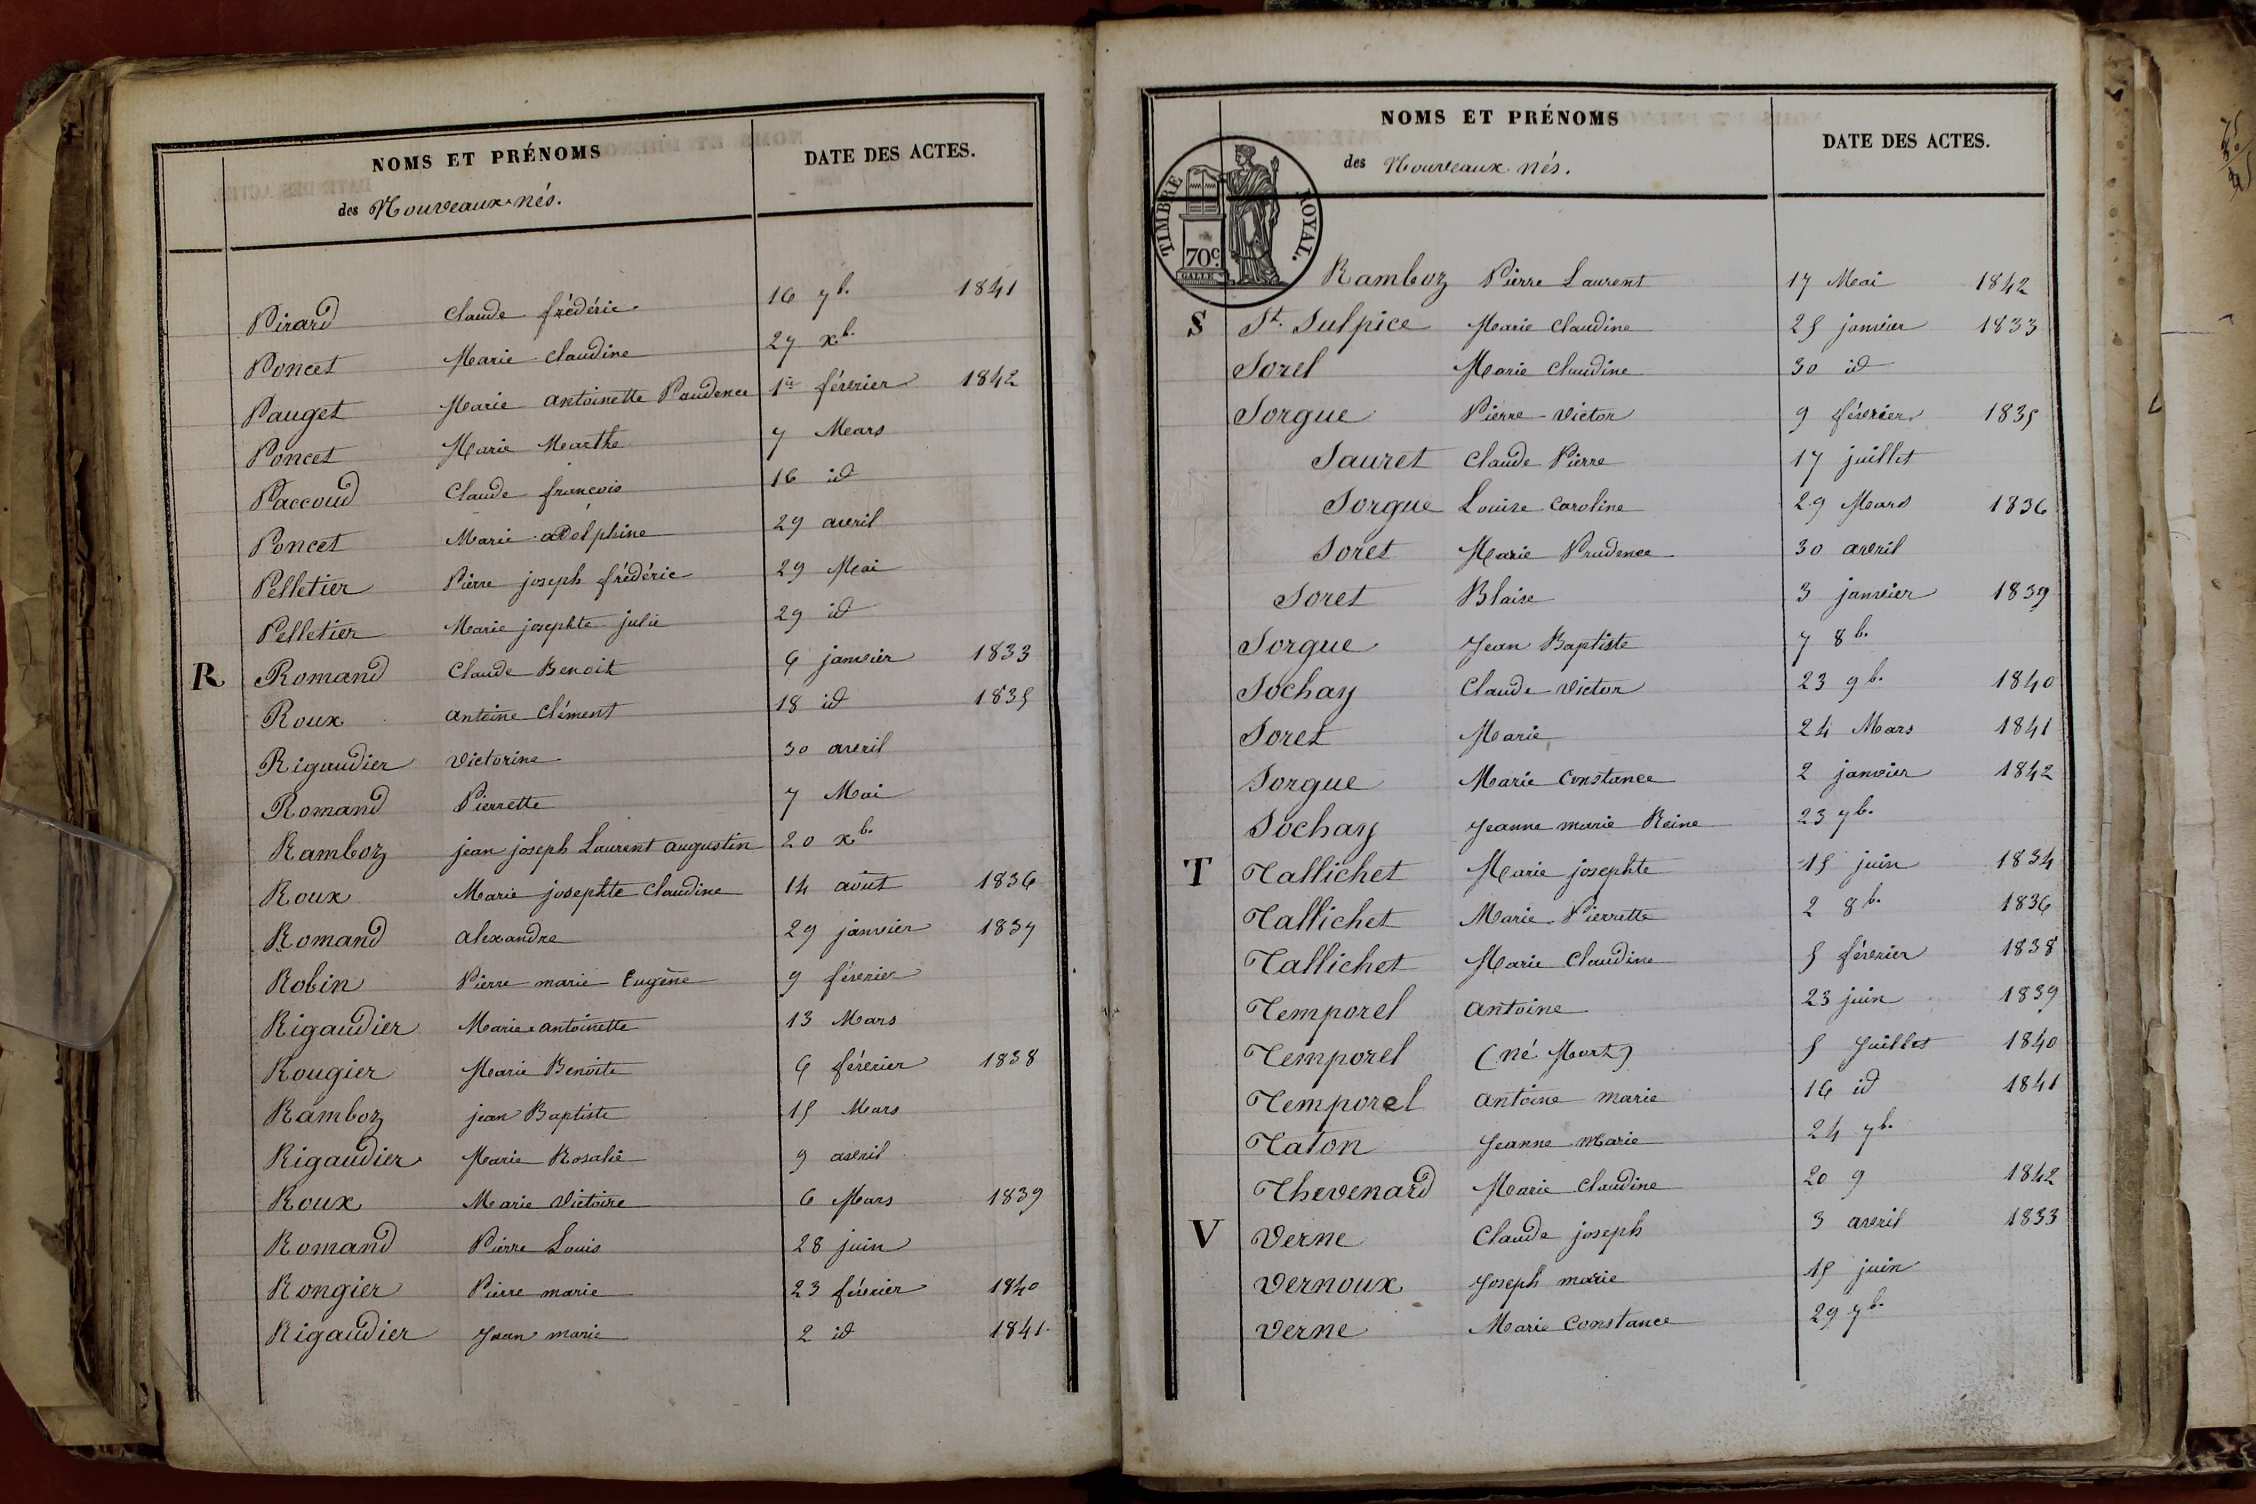 NOMS ET PRÉNOMS
des Nouveaux nés.
DATE DES ACTES.
Pirard Claude frédéric 16 7b. 1841
Poncet Marie Claudine 27 xb.
Pauget Marie antoinette Paudence 1er février 1842
Poncet Marie Marthe 7 Mars
Paccoud Claude françois 16 id
Poncet Marie adelphine 29 avril
Pelletier Pierre joseph frédéric 29 Mai
Pelletier Marie josephte julie 29 id
R Romand Claude Benoit 6 janvier 1833
Roux antoine Clément 18 id 1835
Rigaudier victorine 30 avril
Romand Pierrette 7 Mai
Ramboz jean joseph Laurent augustin 20 xb.
Roux Marie josephte Claudine 14 août 1836
Romand alexandre 29 janvier 1837
Robin Pierre marie Eugène 9 février
Rigaudier Marie antoinette 13 Mars
Rougier Marie Benoite 6 février 1838
Ramboz jean Baptiste 15 Mars
Rigaudier Marie Rosalie 9 avril
Roux Marie Victoire 6 Mars 1839
Romand Pierre Louis 28 juin
Rongier Pierre marie 23 février 1840
Rigaudier Jean marie 2 id 1841
NOMS ET PRÉNOMS
des Nouveaux nés.
DATE DES ACTES.
TIMBRE ROYAL.
70c.
GALLE
Ramboz Pierre Laurent 17 Mai 1842
S St. Sulpice Marie Claudine 25 janvier 1833
Sorel Marie Claudine 30 id
Sorgue Pierre Victor 9 février 1835
Sauret Claude Pierre 17 juillet
Sorgue Louise Caroline 29 Mars 1836
Soret Marie Prudence 30 avril
Soret Blaise 3 janvier 1839
Sorgue Jean Baptiste 7 8b.
Sochay Claude Victor 23 9b. 1840
Soret Marie 24 Mars 1841
Sorgue Marie Constance 2 janvier 1842
Sochay Jeanne marie Reine 23 7b.
T Tallichet Marie josephte 15 juin 1834
Tallichet Marie Pierrette 2 8b. 1836
Tallichet Marie Claudine 5 février 1838
Temporel antoine 23 juin 1839
Temporel (né Mort) 5 Juillet 1840
Temporel antoine marie 16 id 1841
Taton Jeanne marie 24 7b.
Thevenard Marie Claudine 20 9 1842
V Verne Claude joseph 3 avril 1833
Vernoux Joseph marie 15 juin
Verne Marie Constance 29 7b.